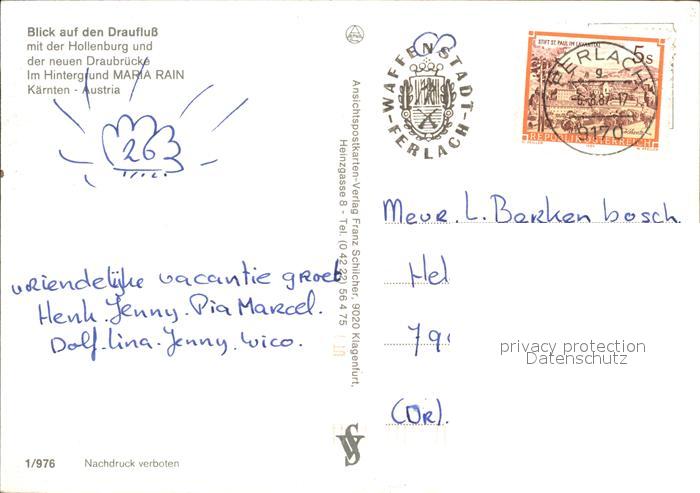 Blick auf den Draufluß
mit der Hollenburg und
der neuen Draubrücke
Im Hintergrund MARIA RAIN
Kärnten - Austria
26
vriendelijke vacantie groet
Henk. Jenny. Pia Marcel.
Dolf. lina. Jenny. Wico.
1/976
Nachdruck verboten
Ansichtspostkarten-Verlag Franz Schilcher, 9020 Klagenfurt,
Heinzgasse 8 - Tel. (0 42 22) 56 4 75
WAFFENSTADT
FERLACH
STIFT ST. PAUL IM LAVANTTAL
5s
REPUBLIK ÖSTERREICH
FERLACH
9170
Mevr. L. Berkenbosch.
Hel
79
(Dr).
privacy protection
Datenschutz